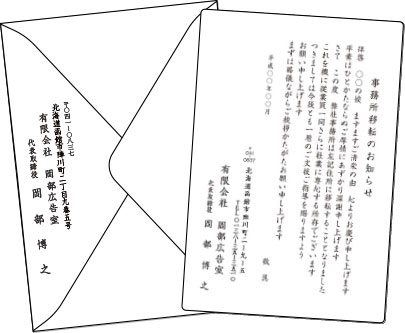 事務所移転のお知らせ
拝啓　○○の候　ますますご清栄の由　心よりお慶び申し上げます
平素はひとかたならぬご厚情にあずかり深謝申し上げます
さて　この度　弊社事務所は左記住所に移転することとなりました
これを機に従業員一同さらに社業に専心する所存でございます
つきましては今後とも一層のご支援ご指導を賜りますよう
お願い申し上げます
まずは略儀ながらご挨拶かたがたお願い申し上げます
敬具
平成○○年○○月
北海道函館市陣川町二ー九ー五
有限会社　岡部広告室
代表取締役　岡部博之
〒○四一ー○八三七
北海道函館市陣川町二丁目九番五号
有限会社　岡部広告室
代表取締役　岡部博之